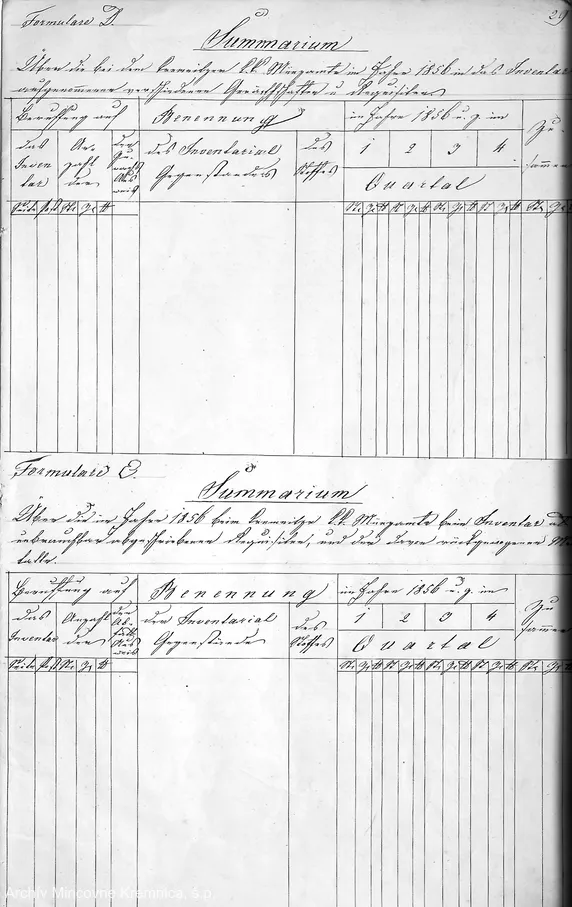 Formulare D.
29
Summarium
Über die bei dem Kremnitzer k.k. Münzamte im Jahre 1856 in das Inventar
aufgenommenen verschiedenen Geräthschaften u. Requisiten
Berufung auf
Benennung
im Jahre 1856 u. z. im
Zu
sammen
das
Inven
tar
An-
zahl
der
des Inventarial
Gegenstandes
des
Stoffes
1 2 3 4
Quartal
Seite Post
Formulare E.
Summarium
Über die im Jahre 1856 beim Kremnitzer k.k. Münzamte beim Inventar als
unbrauchbar abgeschriebenen Requisiten, und der davon rückgewogenen Me
talle.
Berufung auf
Benennung
im Jahre 1856 u. z. im
Zu
sammen
das
Inventar
Anzahl
der
der Inventarial
Gegenstände
des
Stoffes
1 2 3 4
Quartal
Seite Post
Archív Mincovne Kremnica, š.p.